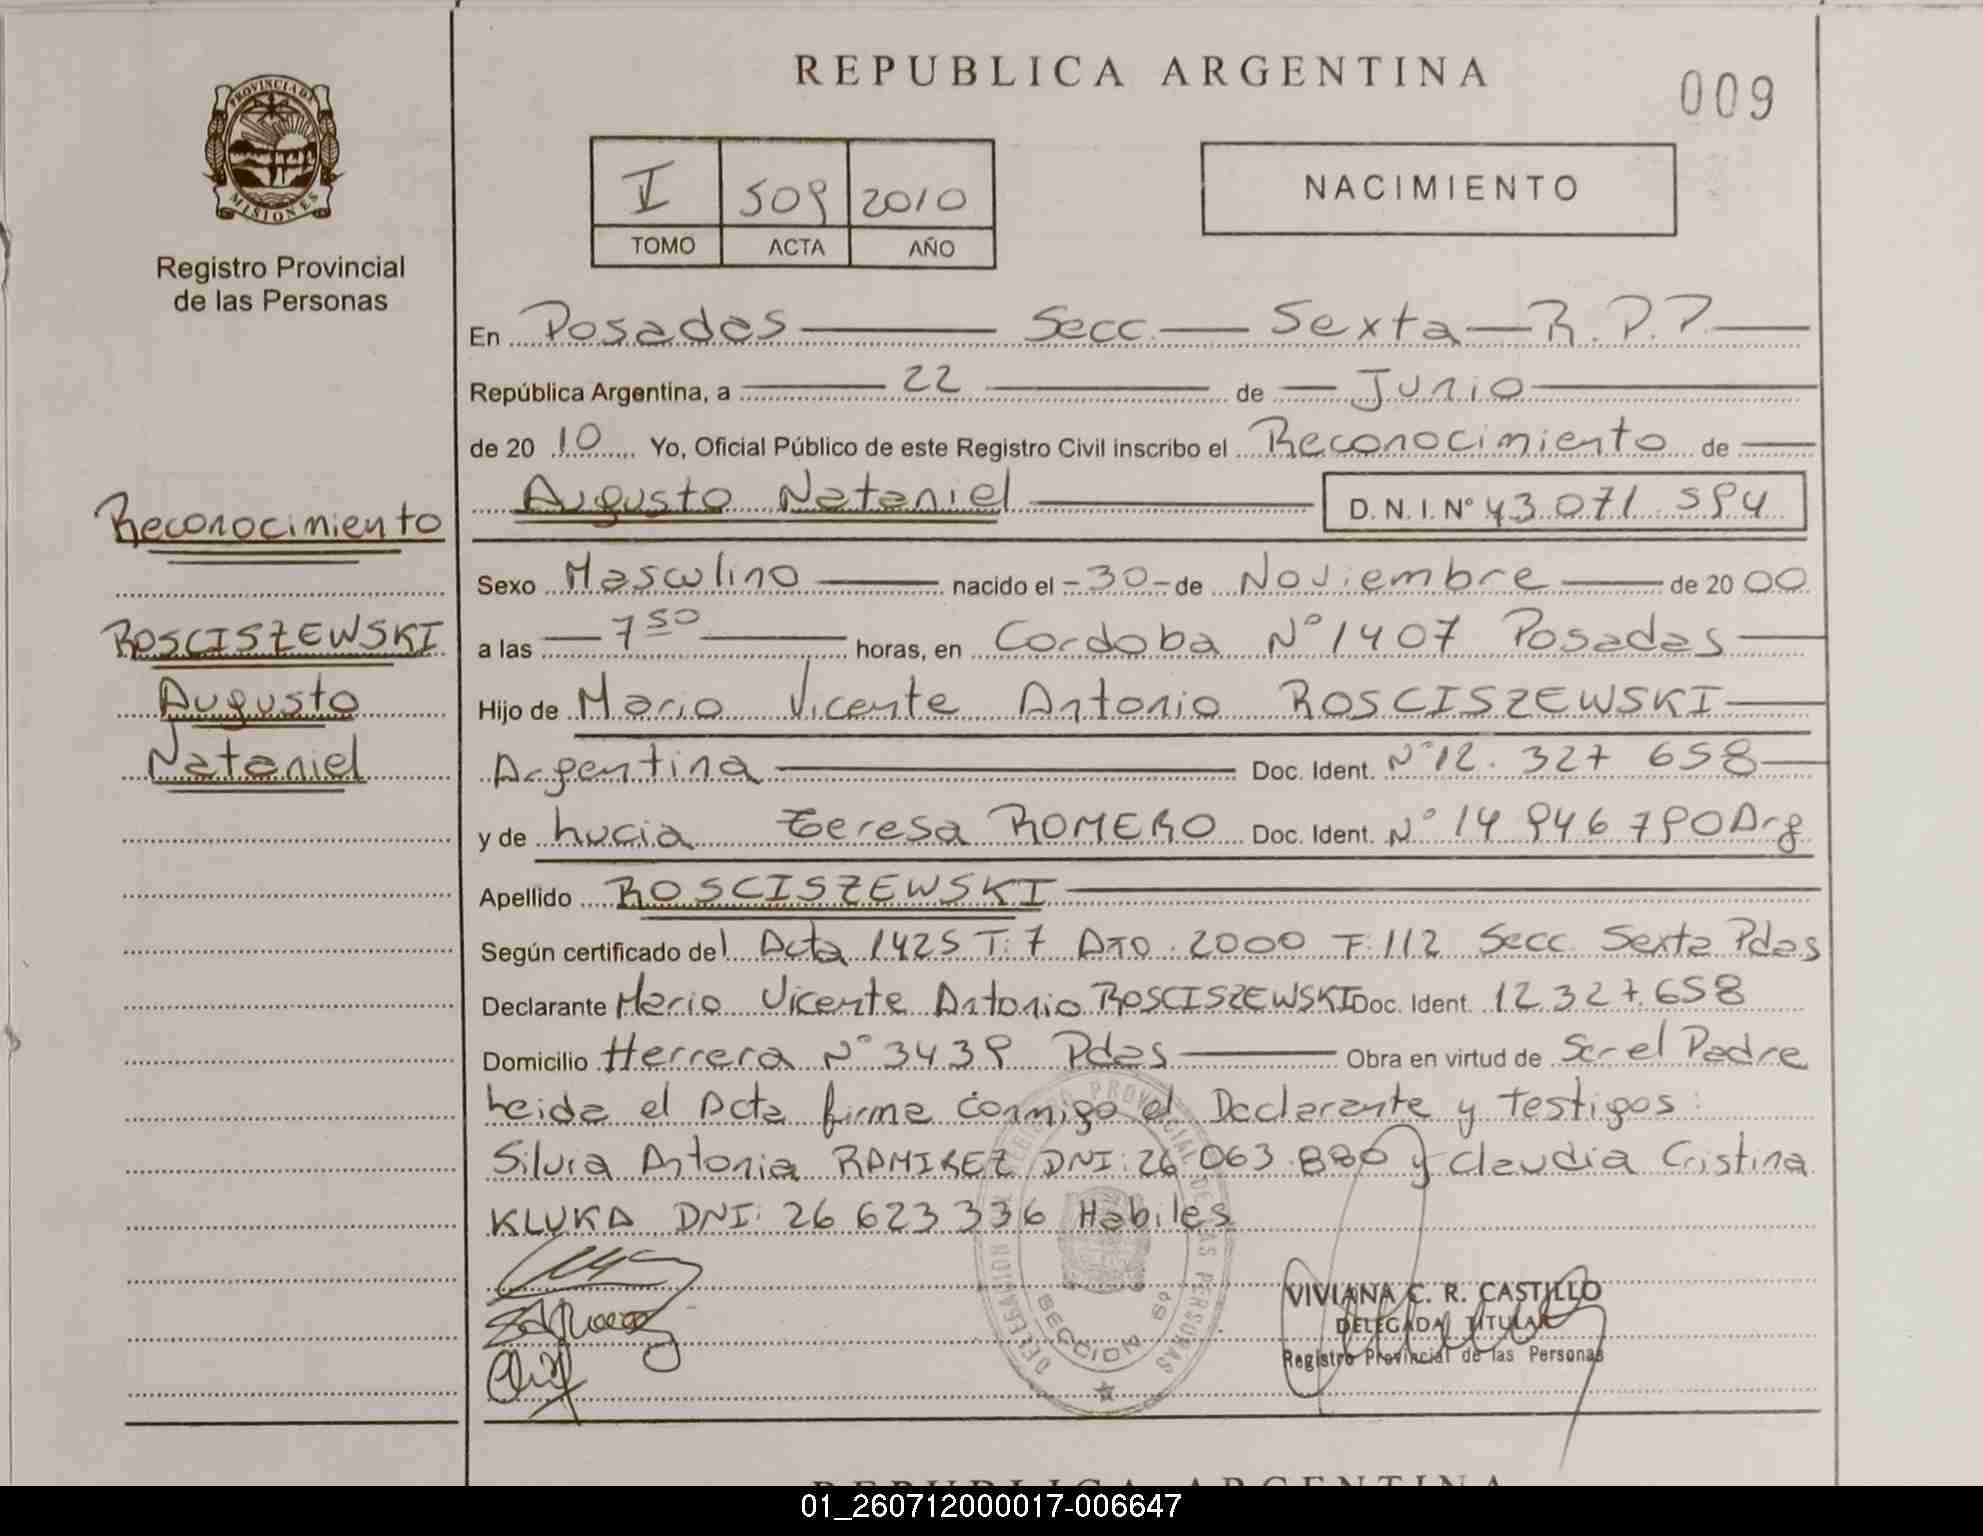 REPUBLICA ARGENTINA
009
PROVINCIA DE
MISIONES
Registro Provincial
de las Personas
509 2010
TOMO ACTA AÑO
NACIMIENTO
En Posadas Secc. Sexta R.P.P.
República Argentina, a 22 de Junio
de 20 10 Yo, Oficial Público de este Registro Civil inscribo el Reconocimiento de
Augusto Nataniel D. N. I. Nº 43.071.594
Reconocimiento
ROSCISZEWSKI
Augusto
Nataniel
Sexo Masculino nacido el -30- de Noviembre de 20 00
a las 7 50 horas, en Cordoba Nº 1407 Posadas
Hijo de Mario Vicente Antonio ROSCISZEWSKI
Argentina Doc. Ident. Nº 12.327 658
y de Lucia Teresa ROMERO Doc. Ident. Nº 14 946 790 Arg
Apellido ROSCISZEWSKI
Según certificado del Acta 1425 T: 7 Año: 2000 F: 112 Secc. Sexta Pdas
Declarante Mario Vicente Antonio ROSCISZEWSKI Doc. Ident. 12.327.658
Domicilio Herrera Nº 3439 Pdas Obra en virtud de Ser el Padre
Leida el Acta firma conmigo el Declarante y testigos:
Silvia Antonia RAMIREZ DNI: 26 063.880 y Claudia Cristina
KLUKA DNI: 26 623 336 Habiles
VIVIANA C. R. CASTILLO
DELEGADA TITULAR
Registro Provincial de las Personas
REPUBLICA ARGENTINA
01_260712000017-006647